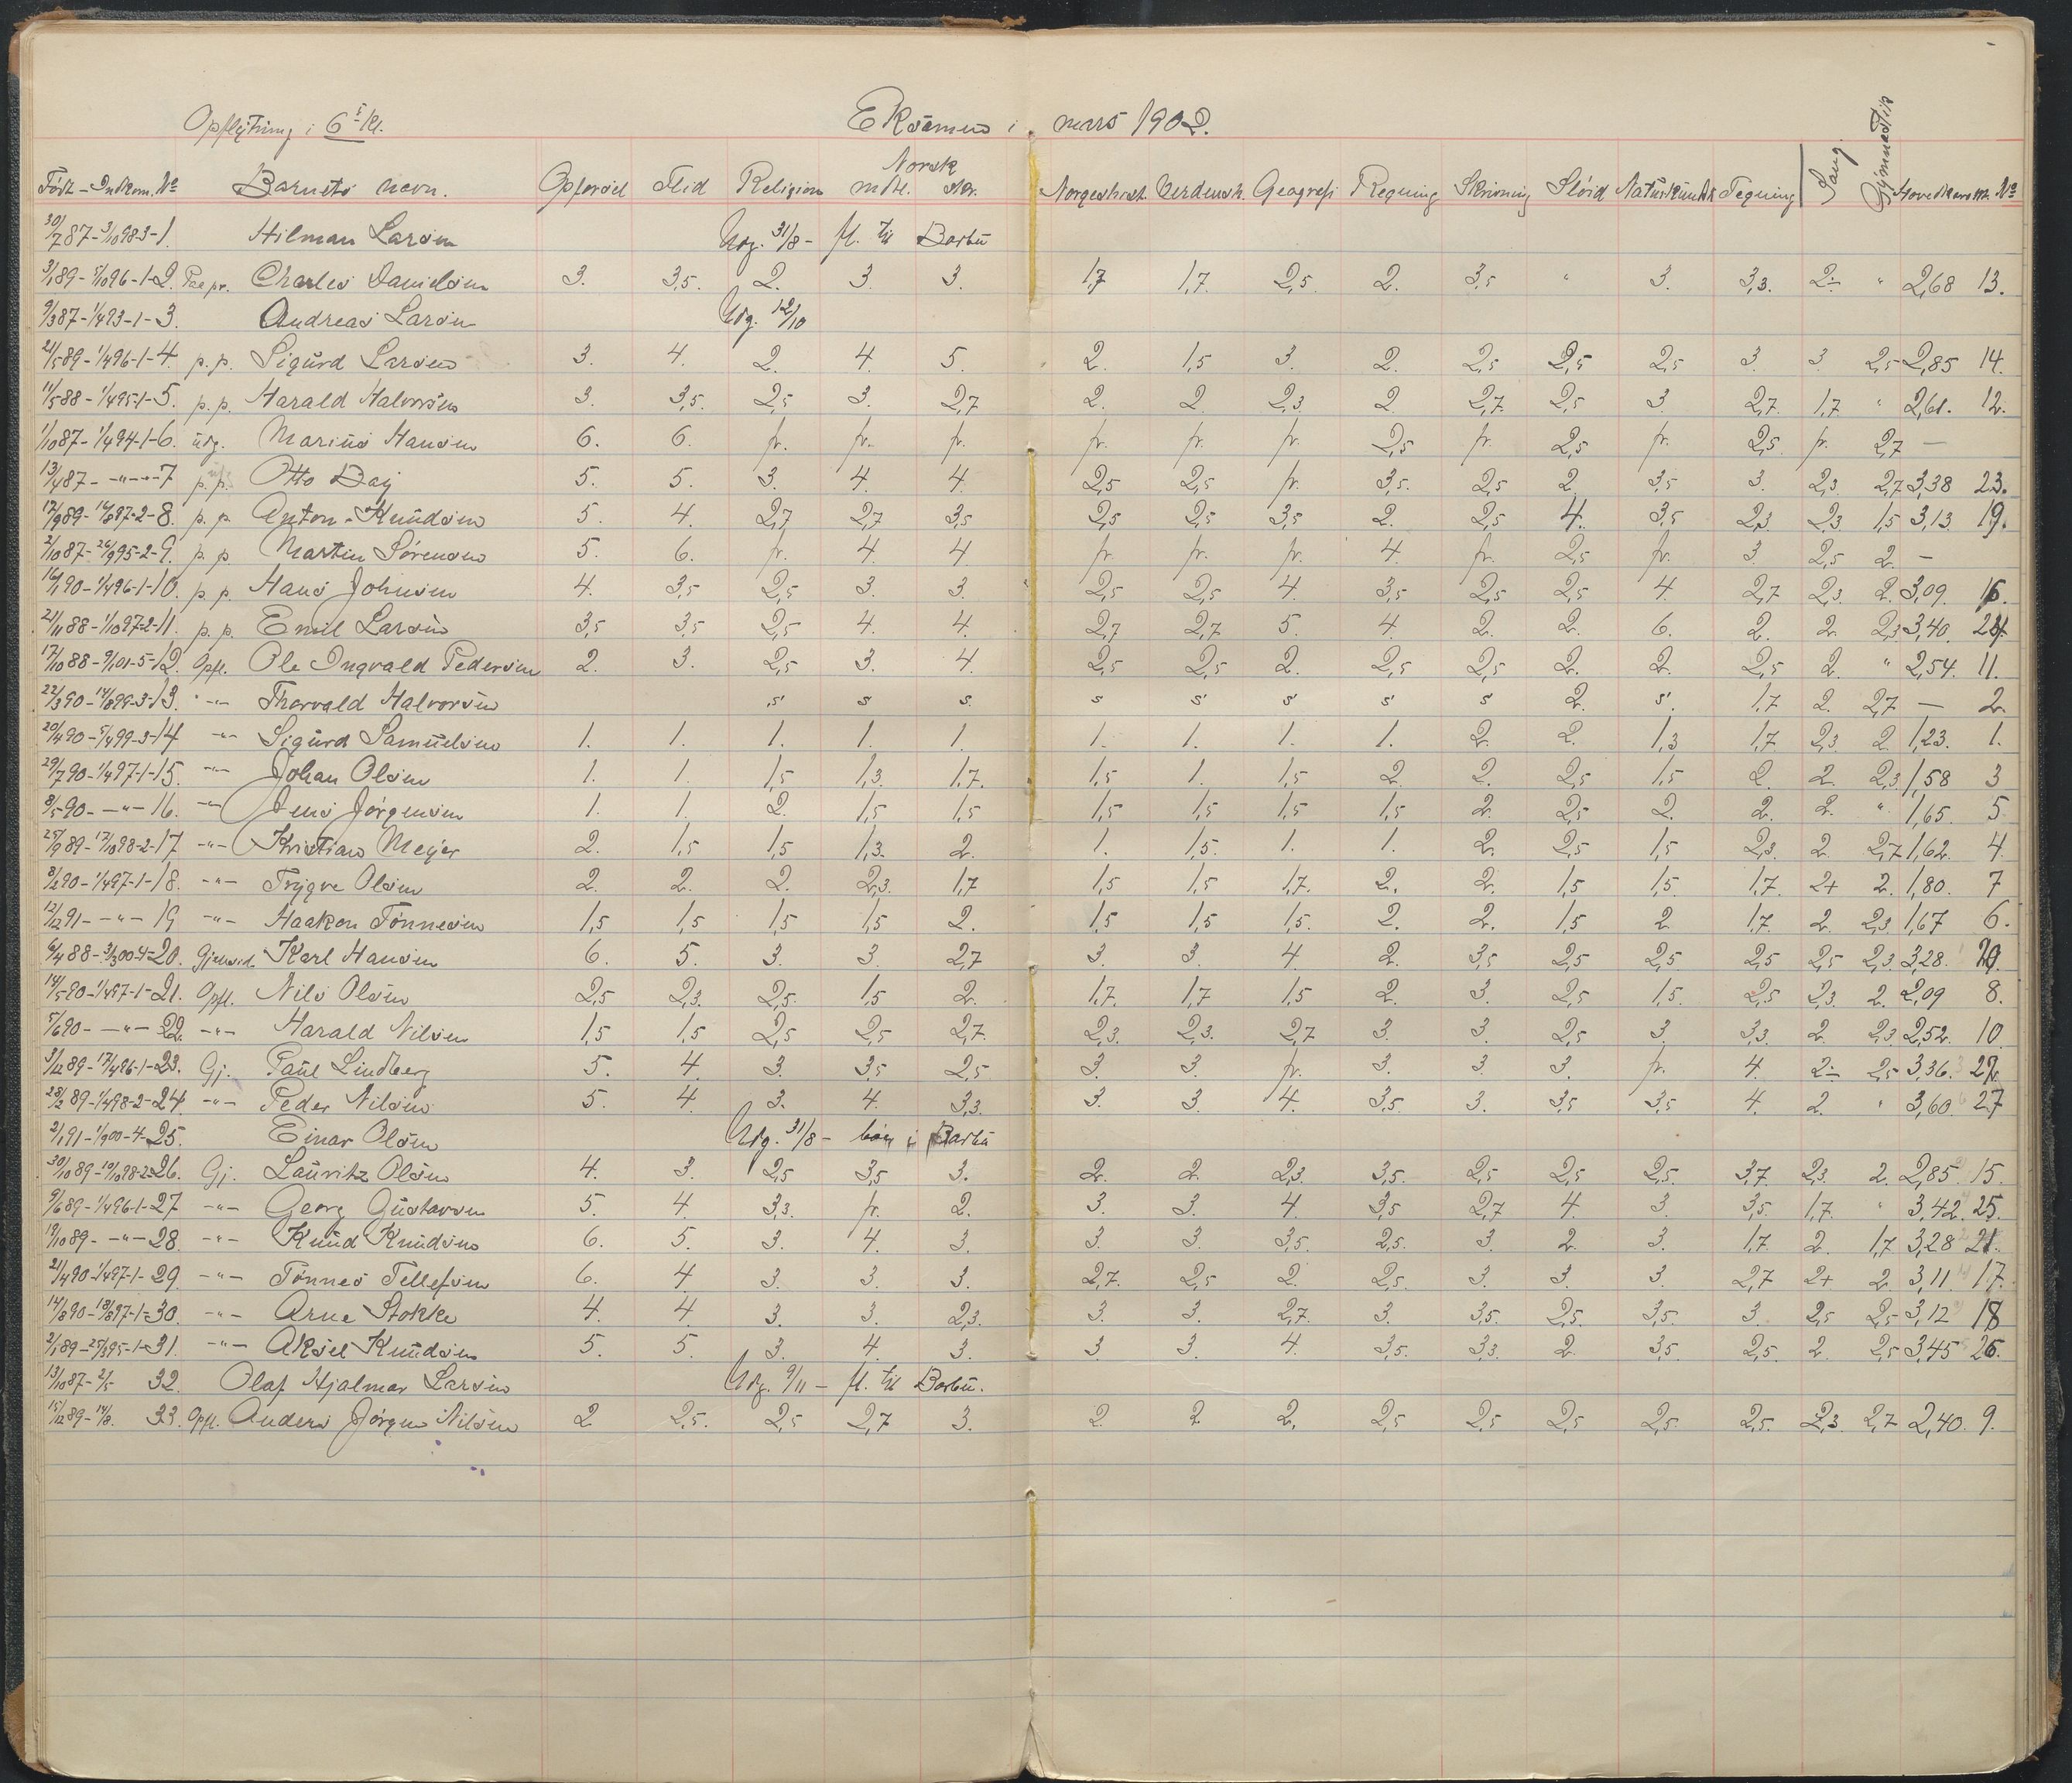 Opflytning i 6te Kl. Eksamen i mars 1902.
Norsk
Født - Indkom. No Barnets navn. Opførsel Flid Religion mdtl. skr. Norgeshist. Verdensh. Geografi Regning Skrivning Sløid Naturkundsk Tegning Sang Gymnastik Hovedkarakt. No
30/7 87 - 3/10 98-3-1. Hilman Larsen Udg. 31/8 - fl. til Barbu
3/1 89 - 5/10 96-1-2. Charles Danielsen 3. 3,5. 2. 3. 3. 1,7 1,7. 2,5. 2. 3,5 " 3. 3,3. 2÷ " 2,68 13.
9/3 87 - 1/4 93-1-3. Andreas Larsen Udg. 12/10
21/5 89 - 1/4 96-1-4. p.p. Sigurd Larsen 3. 4. 2. 4. 5. 2. 1,5 3. 2. 2,5 2,5 2,5 3. 3 2,5 2,85 14.
11/5 88 - 1/4 95-1-5. p.p. Harald Halvorsen 3. 3,5. 2,5 3. 2,7 2. 2. 2,3 2 2,7. 2,5 3. 2,7. 1,7 " 2,61. 12.
1/10 87 - 1/4 94-1-6. udg. Marius Hansen 6. 6. fr. fr. fr. fr. fr. fr. 2,5 fr. 2,5 fr. 2,5 fr. 2,7 —
13/4 87 - -"- -7 p.p. Otto Dag 5. 5. 3. 4. 4. 2,5 2,5 fr. 3,5. 2,5 2 3,5 3. 2,3 2,7 3,38 23.
17/9 89 - 14/8 97-2-8. p.p. Anton Knudsen 5. 4. 2,7 2,7 3,5 2,5 2,5 3,5 2. 2,5 4. 3,5 2,3 2,3 1,5 3,13. 19.
2/10 87 - 26/9 95-2-9. p.p. Martin Sørensen 5. 6. fr. 4. 4. fr. fr. fr. 4. fr. 2,5 fr. 3. 2,5 2. —
16/1 90 - 1/4 96-1-10. p.p. Hans Johnsen 4. 3,5 2,5 3. 3. 2,5 2,5 4. 3,5 2,5 2,5 4. 2,7 2,3 2. 3,09. 16.
21/11 88 - 1/10 97-2-11. p.p. Emil Larsen 3,5 3,5 2,5 4. 4. 2,7 2,7 5. 4. 2. 2. 6. 2. 2. 2,3 3,40. 24
17/10 88 - 9/1 01-5-12. Opfl. Ole Ingvald Pedersen 2. 3. 2,5 3. 4. 2,5 2,5 2. 2,5 2,5 2. 2. 2,5 2. " 2,54. 11.
22/3 90 - 14/8 99-3-13. -"- Thorvald Halvorsen s s s s s s s s 2. s. 1,7 2. 2,7 — 2.
20/4 90 - 5/4 99-3-14 -"- Sigurd Samuelsen 1. 1. 1. 1. 1. 1. 1. 1. 1. 2. 2. 1,3 1,7. 2,3 2. 1,23. 1.
29/7 90 - 1/4 97-1-15. -"- Johan Olsen 1. 1. 1,5 1,3 1,7. 1,5 1. 1,5 2. 2. 2,5 1,5 2. 2. 2,3 1,58 3
8/5 90 - -"- 16. -"- Jens Jørgensen 1. 1. 2. 1,5 1,5 1,5 1,5 1,5 1,5 2. 2,5 2. 2. 2. " 1,65. 5
25/9 89 - 17/10 98-2-17 -"- Kristian Meyer 2. 1,5 1,5 1,3. 2. 1. 1,5. 1. 1. 2. 2,5 1,5 2,3. 2. 2,7 1,62. 4.
8/2 90 - 1/4 97-1-18. -"- Trygve Olsen 2. 2. 2. 2,3. 1,7 1,5 1,5 1,7. 2. 2. 1,5 1,5. 1,7. 2+ 2. 1,80. 7
12/12 91 - -"- 19 -"- Haakon Tønnesen 1,5 1,5 1,5 1,5 2. 1,5 1,5 1,5. 2. 2. 1,5 2 1,7. 2. 2,3. 1,67 6.
6/4 88 - 3/3 00-4-20. Karl Hansen 6. 5. 3. 3. 2,7 3. 3. 4. 2. 3,5 2,5 2,5 2,5 2,5 2,3. 3,28. 20.
14/5 90 - 1/4 97-1-21. Opfl. Nils Olsen 2,5 2,3. 2,5. 1,5 2. 1,7. 1,7 1,5 2. 3. 2,5 1,5. 2,5 2,3. 2. 2,09 8.
5/6 90 - -"- 22. -"- Harald Nilsen 1,5 1,5 2,5 2,5 2,7. 2,3. 2,3. 2,7 3. 3. 2,5 3. 3,3. 2. 2,3 2,52. 10.
3/12 89 - 17/4 96-1-23. Gj. Paul Lindberg 5. 4. 3. 3,5 2,5 3. 3. fr. 3. 3. 3. fr. 4. 2÷ 2,5 3,36. 22.
28/2 89 - 1/4 98-2-24. -"- Peder Nilsen 5. 4. 3. 4. 3,3. 3. 3. 4. 3,5. 3. 3,5 3,5 4. 2. " 3,60. 27
2/1 91 - 1/9 00-4-25. Einar Olsen Udg. 31/8 - bor i Barbu
30/10 89 - 10/10 98-2-26. Gj. Lauritz Olsen 4. 3. 2,5 3,5 3. 2. 2. 2,3 3,5. 2,5 2,5 2,5. 3,7. 2,3. 2. 2,85. 15.
9/6 89 - 1/4 96-1-27 -"- Georg Gustavsen 5. 4 3,3. fr. 2. 3. 3. 4. 3,5 2,7 4. 3. 3,5. 1,7. " 3,42. 25.
19/10 89 - -"- 28. -"- Knud Knudsen 6. 5. 3. 4. 3. 3. 3. 3,5. 2,5. 3. 2. 3. 1,7. 2. 1,7 3,28 21.
21/4 90 - 1/4 97-1-29. -"- Tønnes Tellefsen 6. 4 3. 3. 3. 2,7. 2,5 2. 2,5. 3. 3. 3. 2,7 2+ 2. 3,11 17.
14/8 90 - 18/8 97-1-30. -"- Arne Stokke 4. 4. 3. 3. 2,3. 3. 3. 2,7. 3. 3,5. 2,5. 3,5. 3. 2,5 2,5 3,12 18
2/1 89 - 25/3 95-1-31. -"- Aksel Knudsen 5. 5. 3. 4. 3. 3 3. 4. 3,5. 3,3. 2. 3,5. 2,5. 2. 2,5 3,45 26.
13/10 87 - 2/5 32. Olaf Hjalmar Larsen Udg. 9/11 - fl. til Barbu.
15/12 89 - 14/8. 33. Opfl. Anders Jørgen Nilsen 2 2,5. 2,5 2,7 3. 2. 2 2. 2,5 2,5 2,5 2,5 2,5. 2,3. 2,7 2,40. 9.